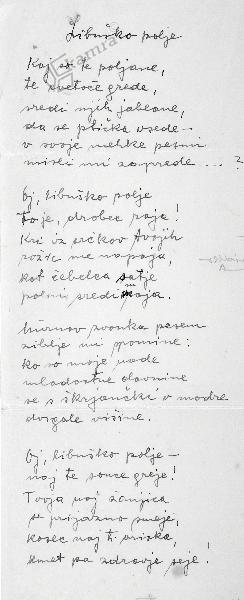 Libuško polje
Kaj so te poljane,
te cvetoče grede,
sredi njih jablane,
da se ptička usede –
v svoje mehke pesmi
misli mi zaprede ... ?
Oj, libuško polje
to je, drobec raja!
Kri iz tvojih
rožic me napaja,
kot čebelca satje
polni sredi maja.
Murnov zvonka pesem
ziblje mi spomine:
ko so moje nade
mladostne davnine
se s škrjančki v modre
dvigale višine.
Oj, libuško polje –
naj te sonce greje!
Tvoja naj žanjica
se prijazno smeje,
kosec naj ti vriska,
kmet pa zdravje seje!
Kamra